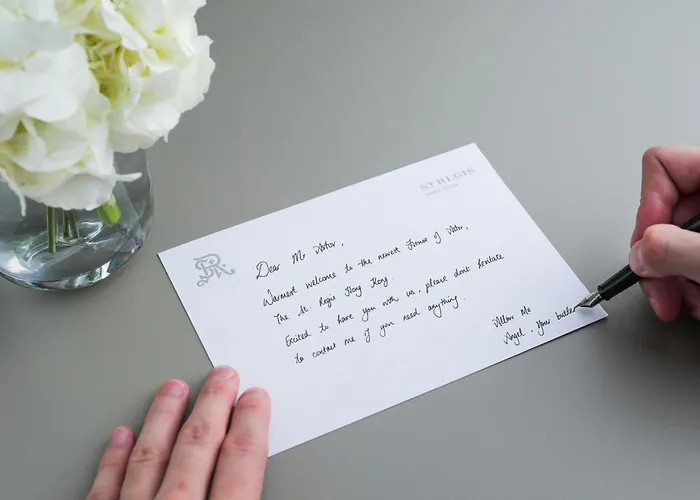 ST REGIS
HONG KONG
Dear Mr Astor,
Warmest welcome to the newest House of Astor,
The St. Regis Hong Kong.
Excited to have you with us, please don't hesitate
to contact me if you need anything.
Angel, Your butler